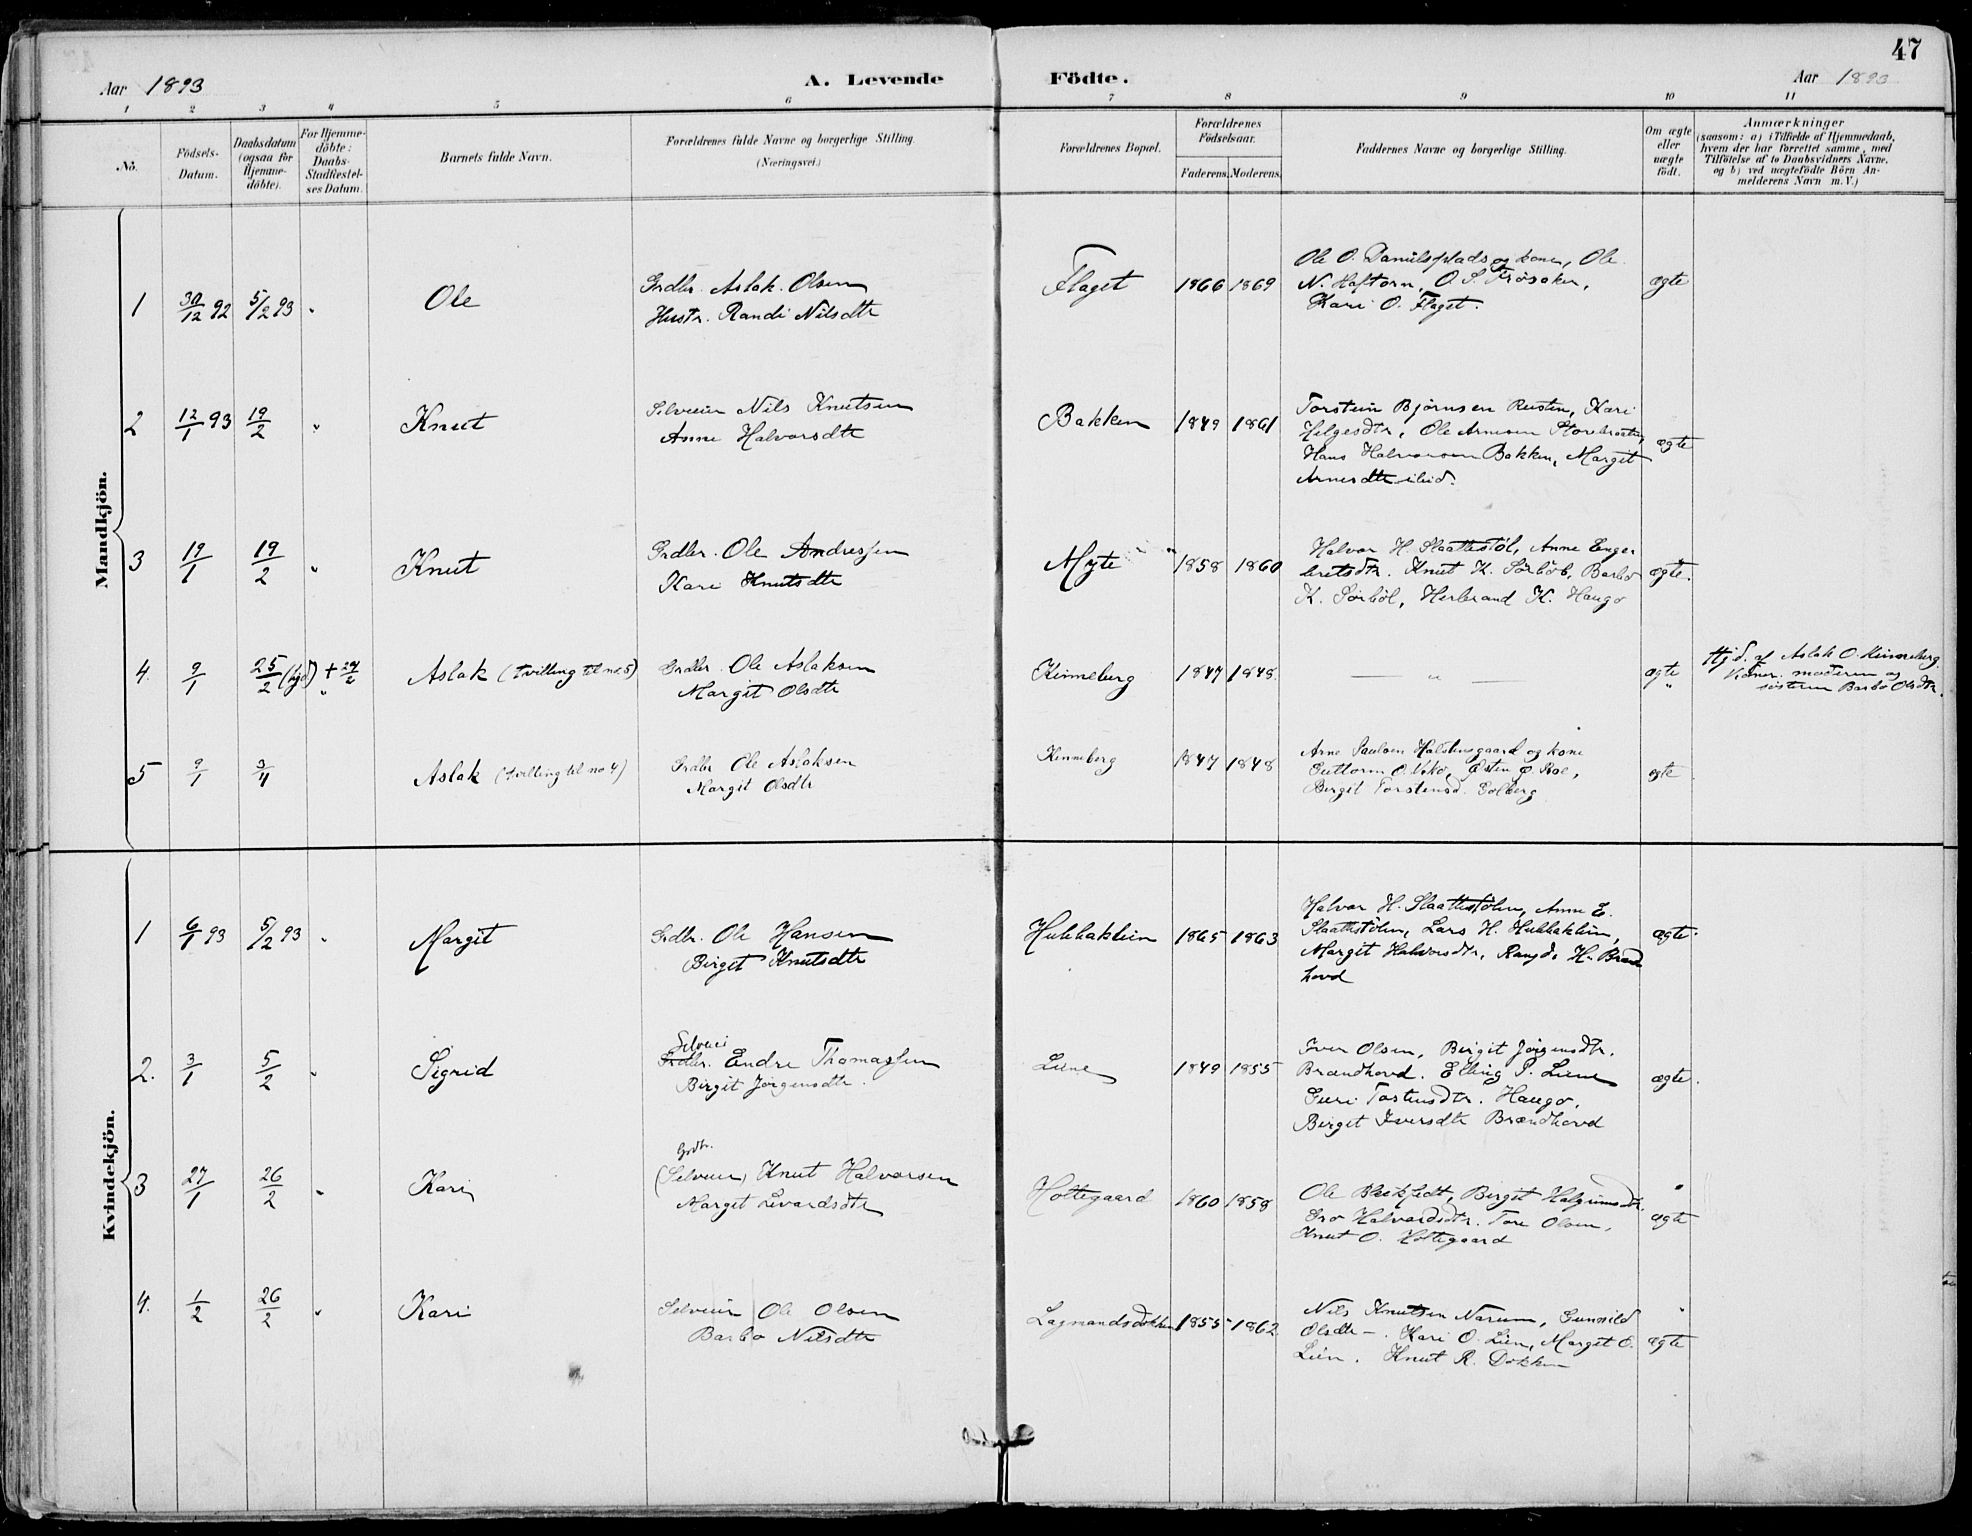 47
Aar 1893 A. Levende Födte. Aar 1893
1 2 3 4 5 6 7 8 9 10 11
No.
Födsels-
Datum.
Daabsdatum
(ogsaa for
Hjemme-
döbte).
For Hjemme-
döbte:
Daabs-
Stadfæstel-
ses Datum.
Barnets fulde Navn.
Forældrenes fulde Navne og borgerlige Stilling.
(Næringsvei.)
Forældrenes Bopæl.
Forældrenes
Födselsaar.
Faderens. Moderens.
Faddernes Navne og borgerlige Stilling.
Om ægte
eller
uægte
födt.
Anmærkninger
(saasom: a) i Tilfælde af Hjemmedaab,
hvem der har forrettet samme, med
Tilföielse af to Daabsvidners Navne,
og b) ved uægtefödte Börn An-
melderens Navn m. V.)
Mandkjön.
1 30/12 92 5/2 93 " Ole
Grdbr. Aslak Olsen
Hustr. Randi Nilsdtr
Flaget 1866 1869
Ole O. Danielsplads og kone, Ole
N. Haftorn, O. S. Frøsaker,
Kari O. Flaget.
ægte
2 12/1 93 19/2 " Knut
Selveier Nils Knutsen
Anne Halvorsdtr
Bakken 1849 1861
Torstein Bjørnsen Reisten, Kari
Helgesdtr, Ole Arnesen
Hans Halvorsen Bakken, Margit
Arnesdtr ibid.
ægte
3 19/1 19/2 " Knut
Grdbr. Ole Andressen
Kari Knutsdtr
Myte 1858 1860
Halvor H. Slaattestøl, Anne Enge-
bretsdtr. Knut K. Sørbøl, Barbo
K. Sørbøl, Herbrand K. Haugo
ægte.
4. 9/1 25/2 (hjd) + Aslak (tvilling til no. 5)
Grdbr. Ole Aslaksen
Margit Olsdtr
Kinneberg 1847 1848.
— " —
ægte
"
Hjd. af Aslak O. Kinneberg.
Vidner. moderen og
søsteren Barbo Olsdtr.
5 9/1 3/4 Aslak (tvilling til no 4)
Grdbr Ole Aslaksen
Margit Olsdtr
Kinneberg 1847 1848
Arne Paulsen Halstensgaard og kone
Guttorm O. Østen O. Roe,
Birgit Torstensd. Golberg
ægte
Kvindekjön.
1 6/1 93 5/2 93 " Margit
Grdbr. Ole Hansen
Birgit Knutsdtr
Hulbaklien 1865 1863
Halvor H. Slaattestølen, Anne E.
Slaattestølen, Lars H. Hulbaklien,
Margit Halvorsdtr, H. Brænd
hovd
ægte.
2. 3/1 5/2 " Sigrid
Selveier
Grdbr. Endre Thomassen
Birgit Jørgensdtr.
Liene 1849 1855
Iver Olsen, Birgit Jørgensdtr.
Brændhovd. Elling P. Liene
Guri Torstensdtr. Haugo,
Birgit Iversdtr Brændhovd
ægte.
3 27/1 26/2 " Kari
Grdbr.
(Selveier) Knut Halvorsen
Margit Sevardsdtr
Holtegaard 1860 1858
Ole Birgit Halgrimsdtr.
Gro Halvardsdtr. Tore Olsen,
Knut O. Holtegaard
"
ægte
4. 1/2 26/2 " Kari
Selveier Ole Olsen
Barbo Nilsdtr
Lagmandsdokken 1855 1862
Nils Knutsen Narum, Gunvild
Olsdtr —. Kari O. Lien, Margit O.
Lien. Knut R. Dokken
"
ægte